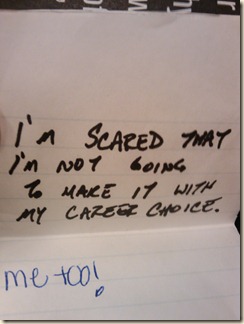 I'm SCARED THAT
I'm NOT GOING
TO MAKE IT WITH
MY CAREER CHOICE.
me too!